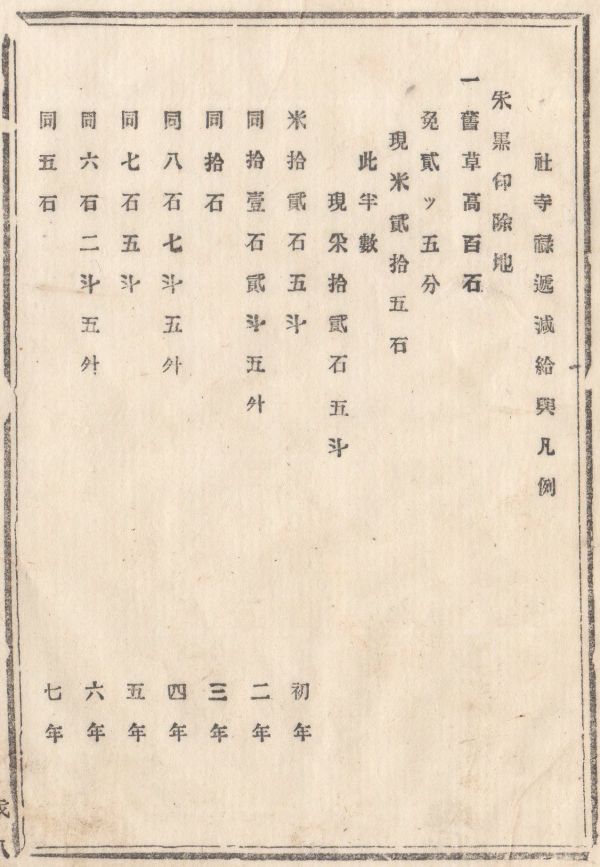 社寺祿遞減給與凡例
朱黒印除地
一舊草高百石
免貳ッ五分
現米貳拾五石
此半數
現米拾貳石五斗
米拾貳石五斗 初年
同拾壹石貳斗五升 二年
同拾石 三年
同八石七斗五升 四年
同七石五斗 五年
同六石二斗五升 六年
同五石 七年